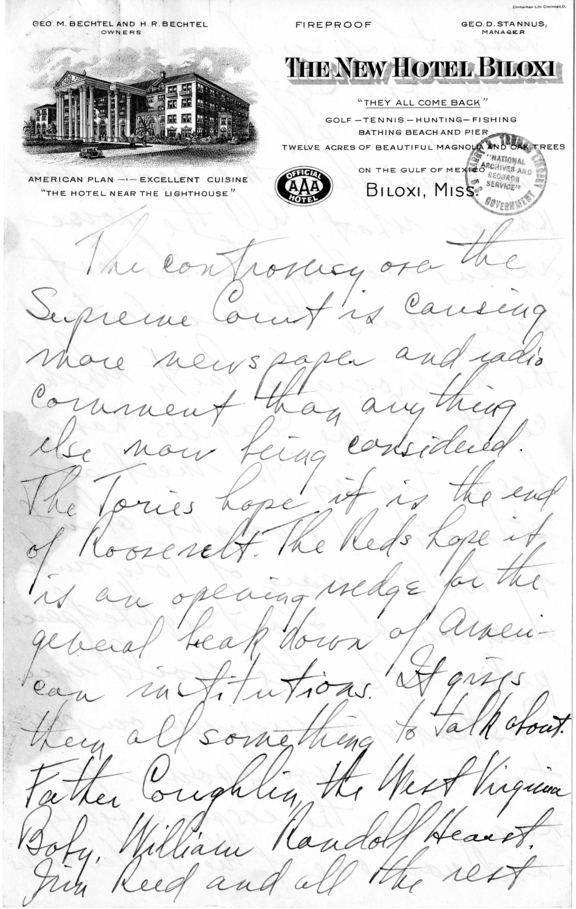 Zimmerman Lith Cincinnati, O.
GEO. M. BECHTEL AND H. R. BECHTEL
OWNERS
FIREPROOF
GEO. D. STANNUS,
MANAGER
THE NEW HOTEL BILOXI
"THEY ALL COME BACK"
GOLF – TENNIS – HUNTING – FISHING
BATHING BEACH AND PIER
TWELVE ACRES OF BEAUTIFUL MAGNOLIA AND OAK TREES
ON THE GULF OF MEXICO
BILOXI, MISS.
AMERICAN PLAN — EXCELLENT CUISINE
"THE HOTEL NEAR THE LIGHTHOUSE"
OFFICIAL
AAA
HOTEL
HARRY S. TRUMAN LIBRARY
"NATIONAL
ARCHIVES AND
RECORDS
SERVICE"
U.S. GOVERNMENT
The controversy over the
Supreme Court is causing
more newspaper and radio
comment than anything
else now being considered.
The Tories hope it is the end
of Roosevelt. The Reds hope it
is an opening wedge for the
general break down of Ameri-
can institutions. It gives
them all something to talk about.
Father Coughlin, the West Virginia
Baby, William Randolf Hearst,
Jim Reed and all the rest